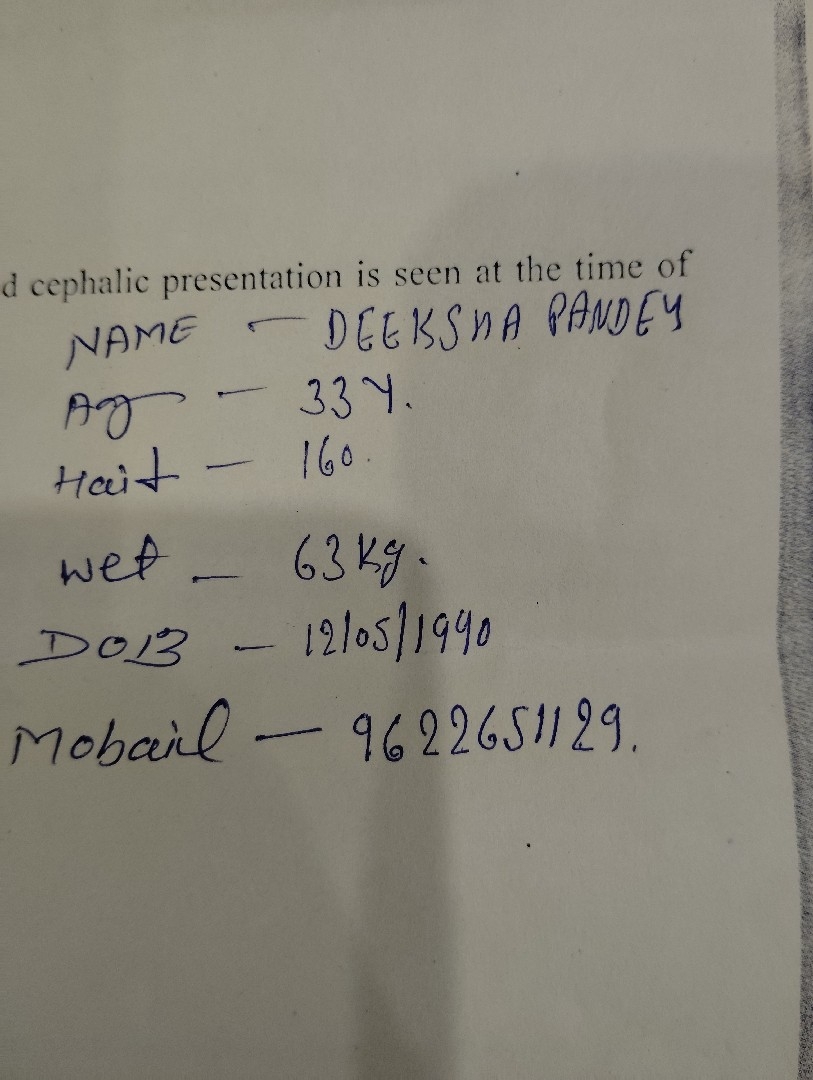 d cephalic presentation is seen at the time of
NAME - DEEKSHA PANDEY
Ag - 33Y.
Hait - 160.
wet - 63 kg.
DOB - 12/05/1990
Mobail - 9622651129.